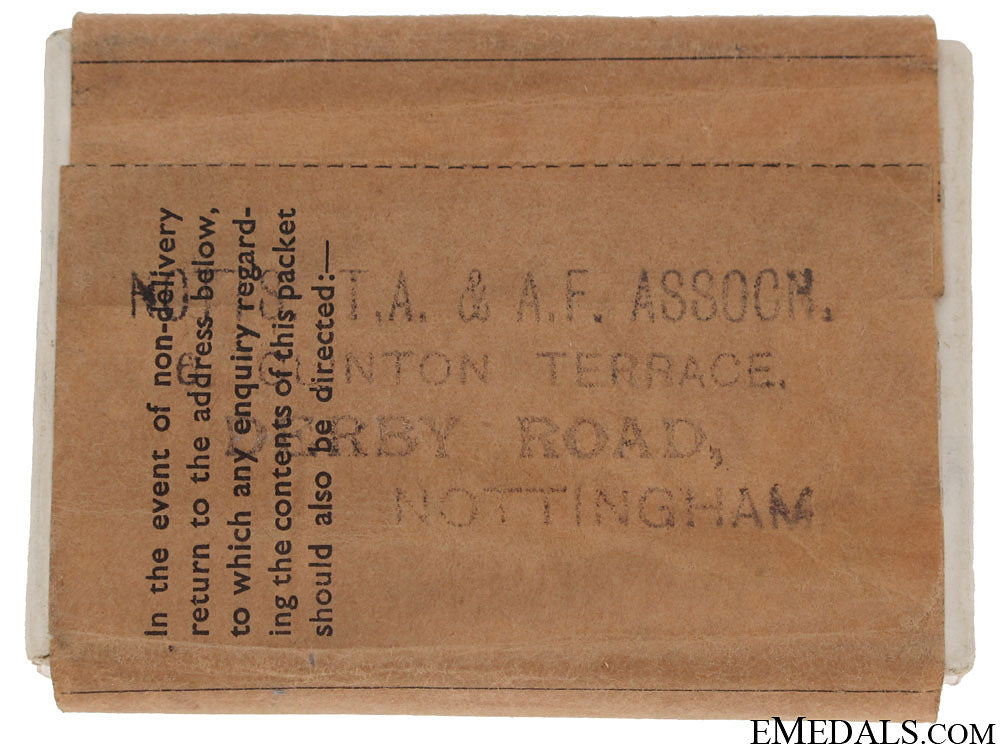 In the event of non-delivery
return to the address below,
to which any enquiry regard-
ing the contents of this packet
should also be directed:—
NOTTS. T.A. & A.F. ASSOCN.
6 CLINTON TERRACE.
DERBY ROAD,
NOTTINGHAM
EMEDALS.COM